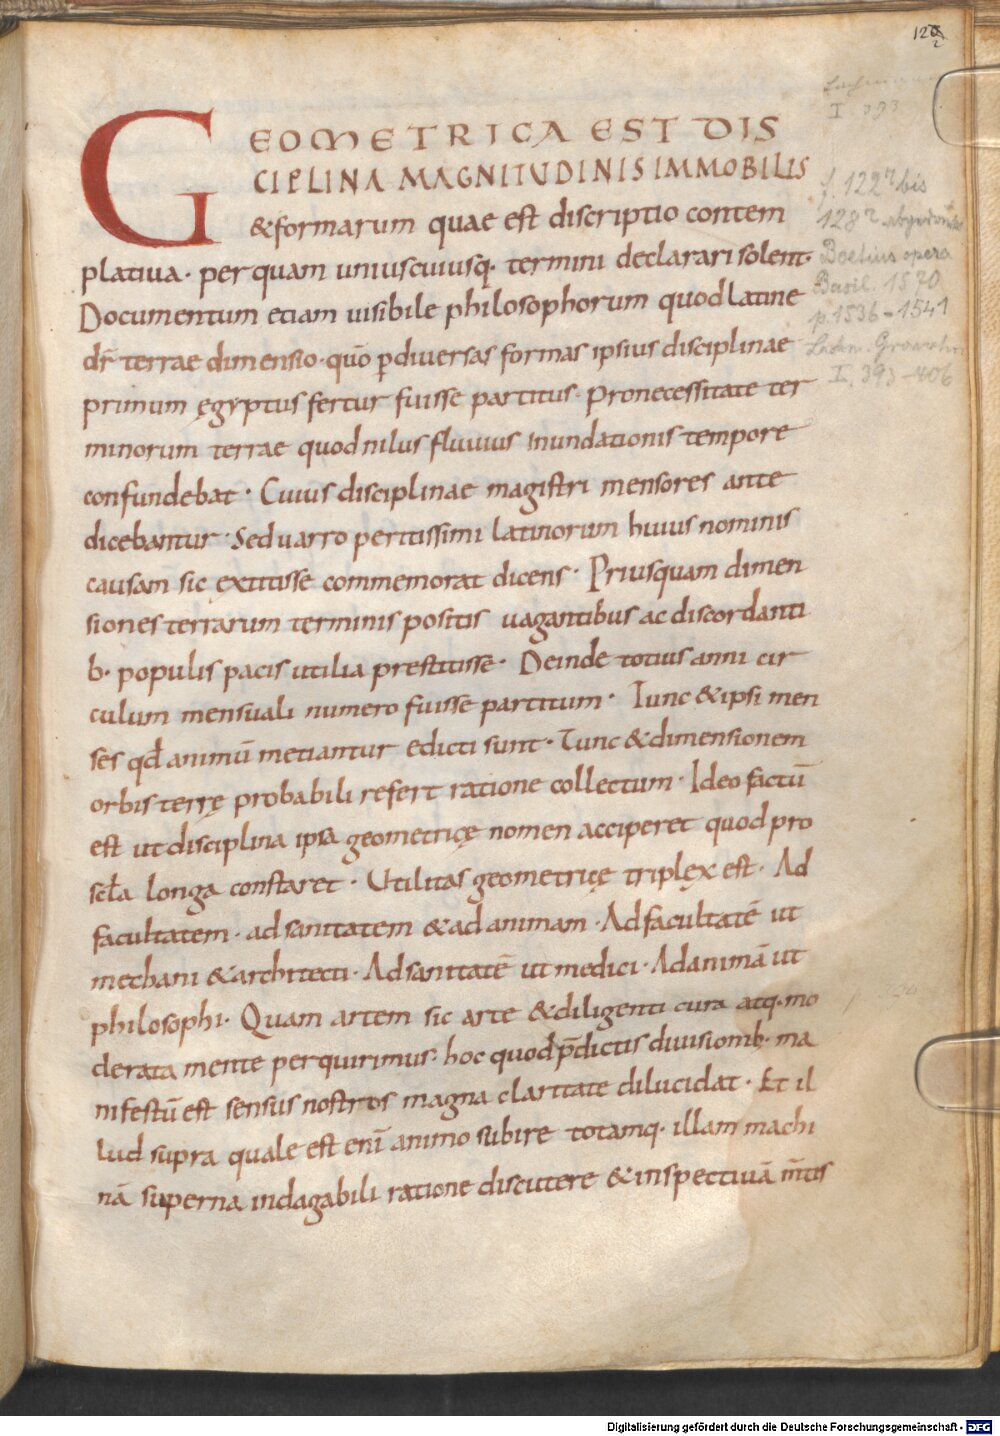 122
I 393
GEOMETRICA EST DIS
CIPLINA MAGNITUDINIS IMMOBILIS
&formarum quae est discriptio contem
platiua · per quam uniuscuiusq· termini declarari solent·
Documentum etiam uisibile philosophorum quod latine
dr̄ terrae dimensio · quō ꝑ diuersas formas ipsius disciplinae
primum ęgyptus fertur fuisse partitus · Pro necessitate ter
minorum terrae quod nilus fluuius inundationis tempore
confundebat · Cuius disciplinae magistri mensores ante
dicebantur · Sed uarro peritissimi latinorum huius nominis
causam sic extitisse commemorat dicens · Priusquam dimen
siones terrarum terminis positis uagantibus ac discordanti
b· populis pacis utilia prestitisse · Deinde totius anni cir
culum mensuali numero fuisse partitum · Tunc & ipsi men
ses qđ animū metiantur edicti sunt · Tunc & dimensionem
orbis terrę probabili refert ratione collectum · Ideo factū
est ut disciplina ipsa geometricę nomen acciperet quod pro
scła longa constaret · Utilitas geometricę triplęx est · Ad
facultatem · ad sanitatem & ad animam · Ad facultatē ut
mechani & architecti · Ad sanitatē ut medici · Ad animā ut
philosophi · Quam artem sic arte & diligenti cura atq· mo
derata mente perquirimus · hoc quod p̄dictis diuisionib· ma
nifestū est sensus nostros magna claritate dilucidat · Et il
lud supra quale est enī animo subire totamq· illam machi
nā superna indagabili ratione discutere & inspectiuā m̄tis
f. 122r bis
128r
Boetius opera
Basil. 1570
p. 1536–1541
I, 393–406
Digitalisierung gefördert durch die Deutsche Forschungsgemeinschaft - DFG